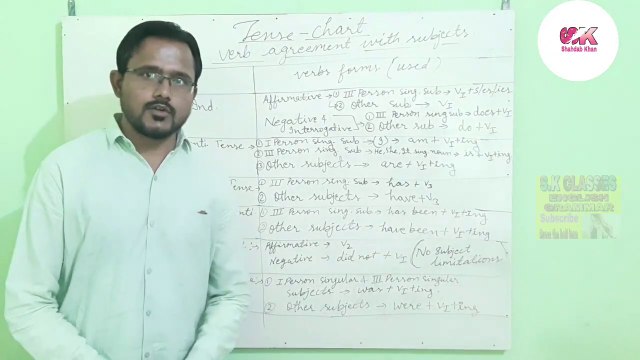 Tense-chart
verb agreement with subjects
verbs forms (used)
Ind.
Affirmative → ① III Person sing. sub → V₁ + s/es/ies
② Other sub → V₁
Negative &
Interrogative
① III Person sing sub → does + V₁
② Other sub → do + V₁
Tense → ① I Person sing. Sub → (I) → am + V₁ + ing
② III Person sing. Sub → He, She, It, sing. noun → is + V₁ + ing
③ Other subjects → are + V₁ + ing
Tense → ① III Person sing. Sub → has + V₃
② Other subjects → have + V₃
① III Person sing. Sub → has been + V₁ + ing
② Other subjects → have been + V₁ + ing
Affirmative → V₂
Negative → did not + V₁ (No Subject
limitations)
① I Person singular & III Person singular
subjects → was + V₁ + ing
② Other subjects → were + V₁ + ing
SK
Shahdab Khan
S.K CLASSES
ENGLISH
GRAMMAR
Subscribe